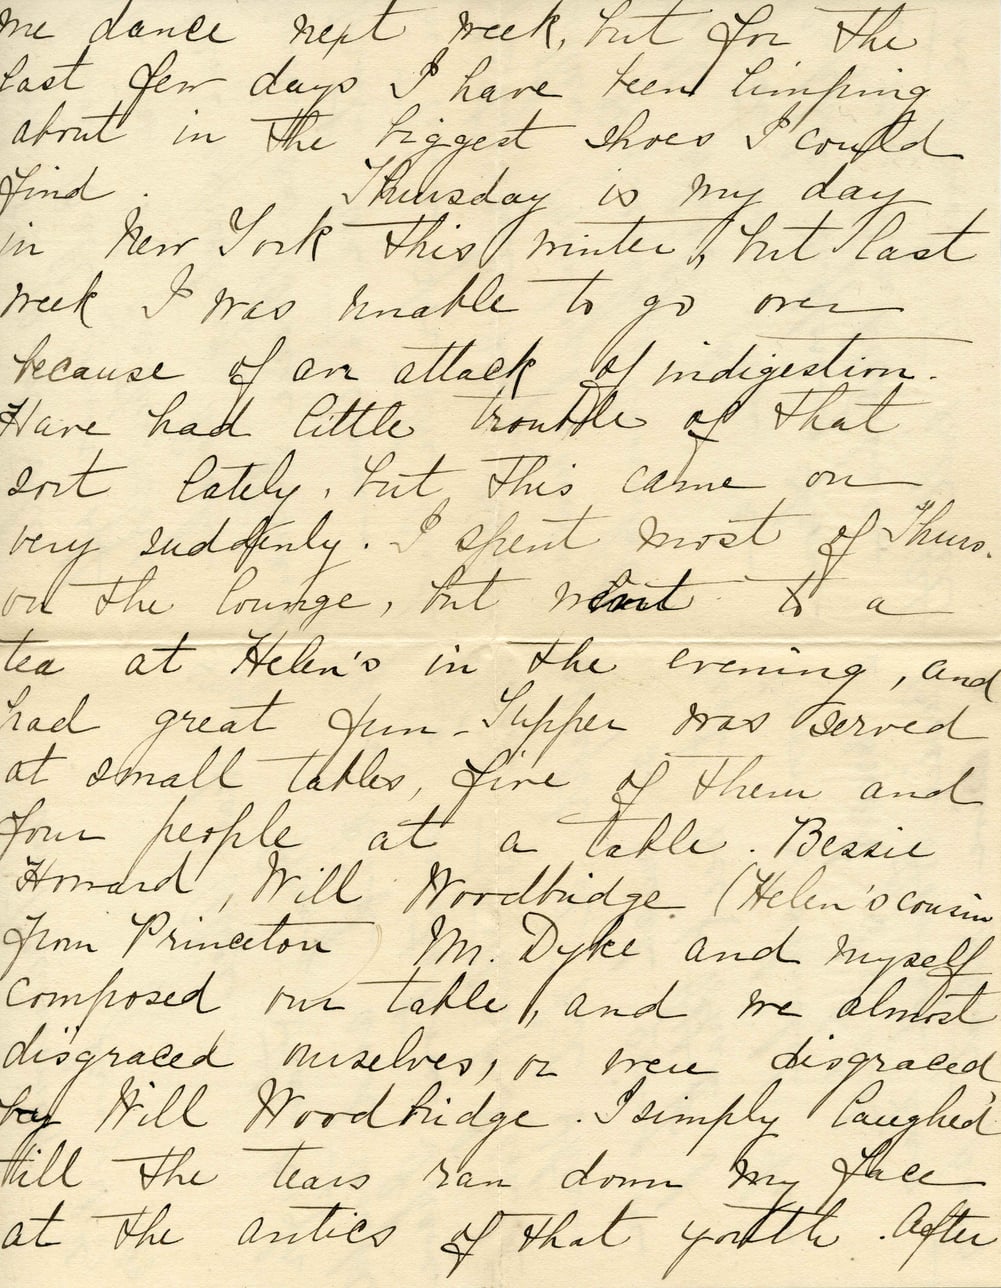 me dance next week, but for the
last few days I have been limping
about in the biggest shoes I could
find. Thursday is my day
in New York this winter, but last
week I was unable to go over
because of an attack of indigestion.
Have had little trouble of that
sort lately, but this came on
very suddenly. I spent most of Thurs.
on the lounge, but went to a
tea at Helen's in the evening, and
had great fun - Supper was served
at small tables, five of them and
four people at a table. Bessie
Howard, Will Woodbridge (Helen's cousin
from Princeton) Mr. Dyke and myself
composed our table, and we almost
disgraced ourselves, or were disgraced,
by Will Woodbridge. I simply laughed
till the tears ran down my face
at the antics of that youth. After